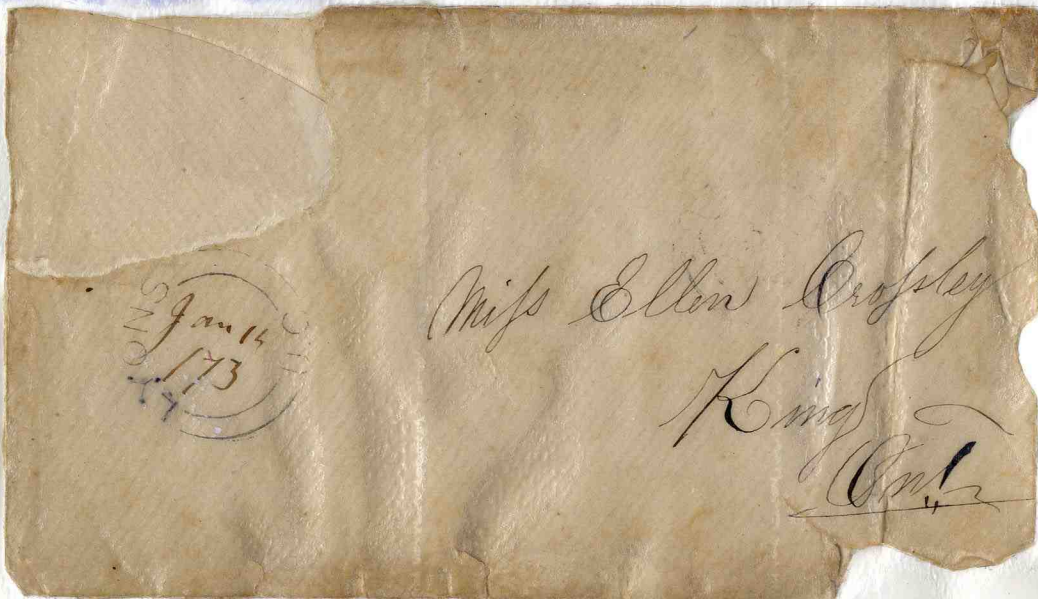 Jan 14
173
Miss Ellen Crossley
King
Ont